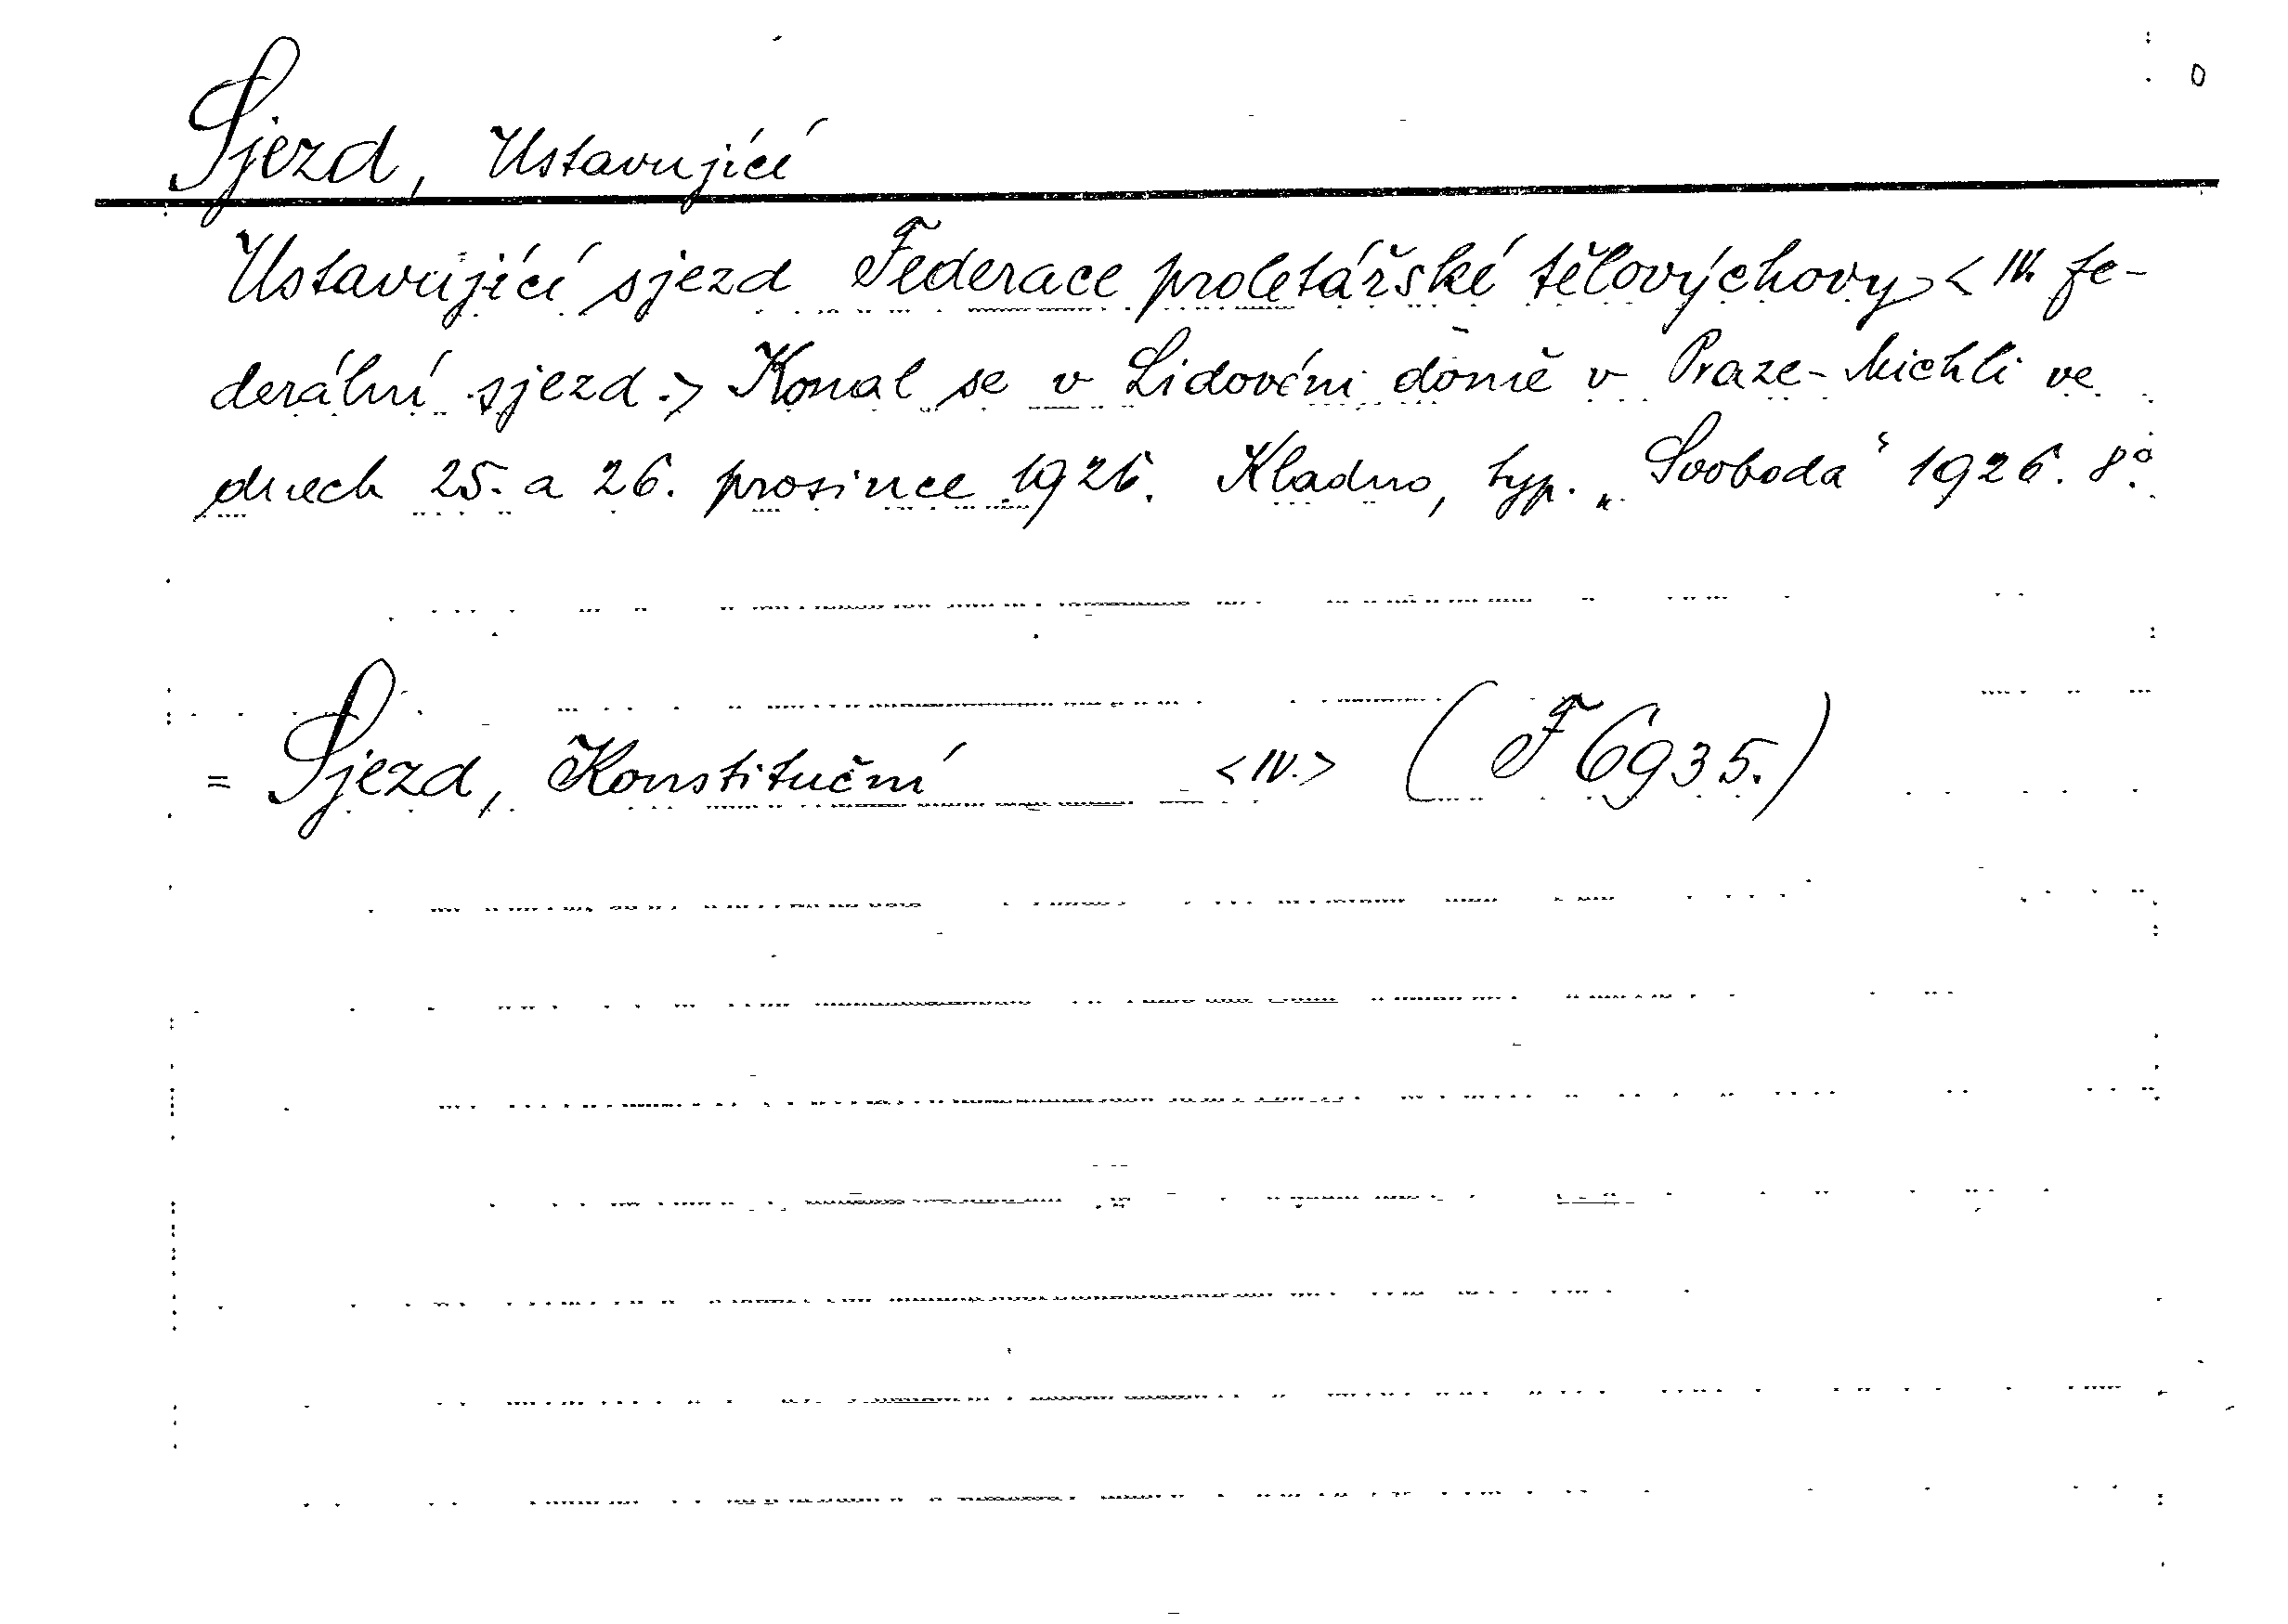 0
Sjezd, Ustavující
Ustavující sjezd Federace proletářské tělovýchovy <IV. fe-
derální sjezd.> Konal se v Lidovém domě v Praze-Michli ve
dnech 25. a 26. prosince 1926. Kladno, typ. „Svoboda“ 1926. 8°.
= Sjezd, Konstituční <IV.> (F 6935.)